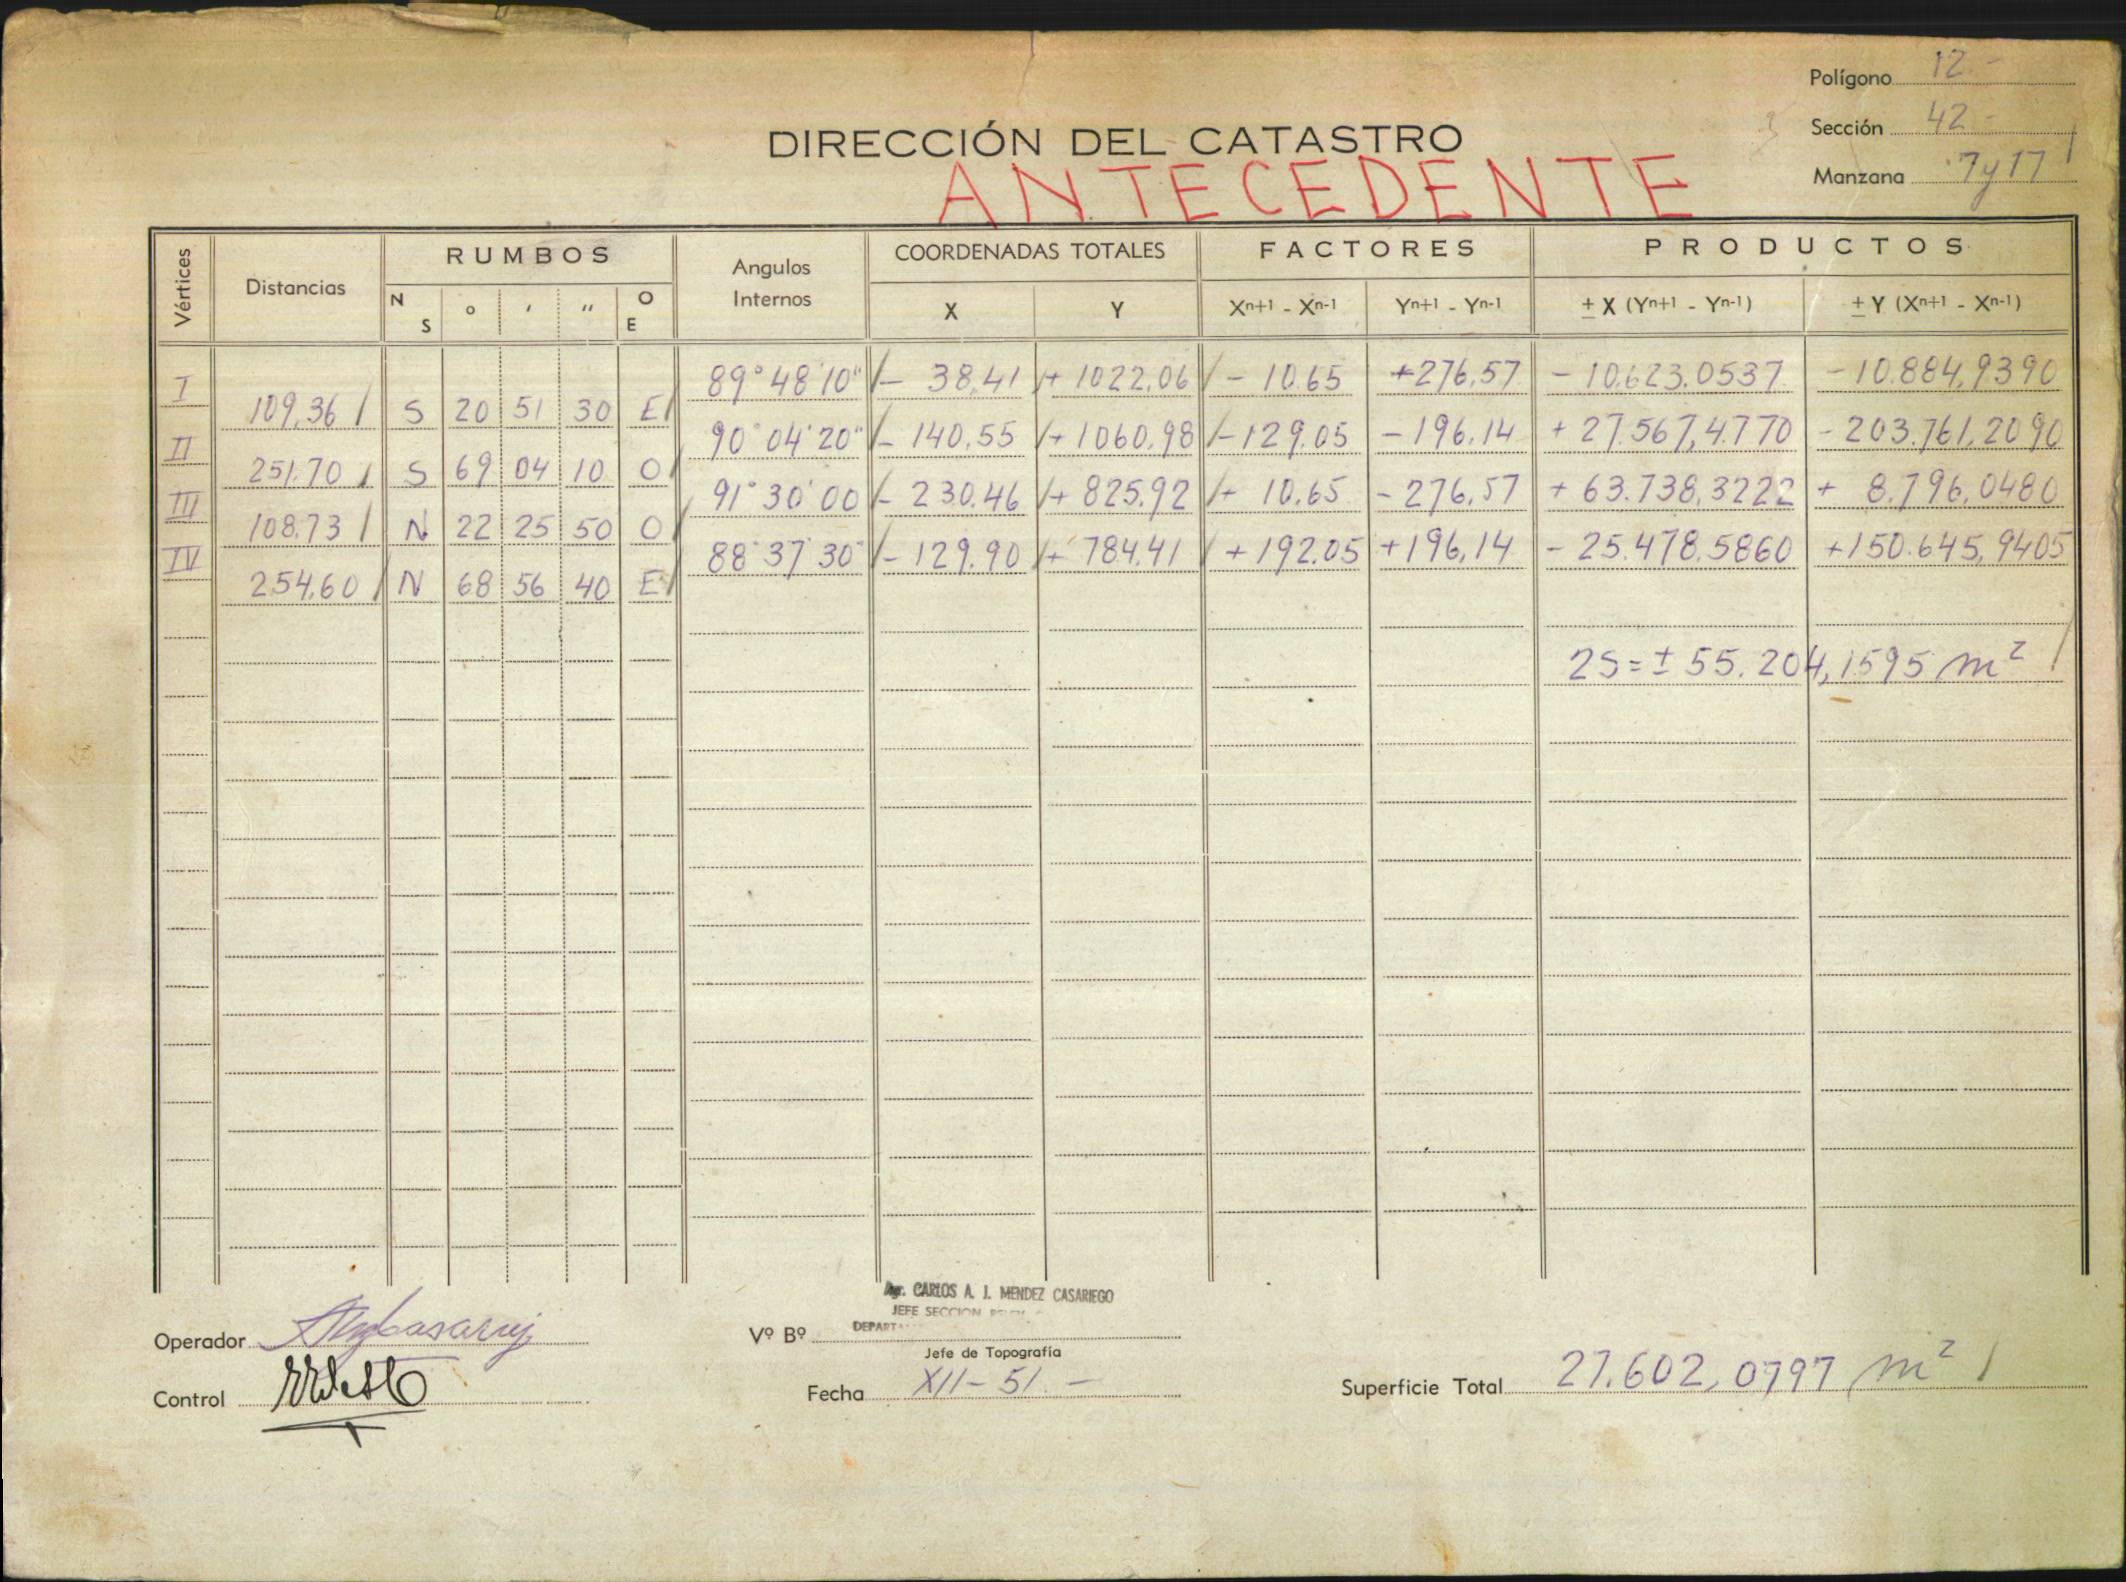 Polígono 12.-
Sección 42-
Manzana 7 y 17
DIRECCIÓN DEL CATASTRO
ANTECEDENTE
Vértices Distancias RUMBOS Angulos Internos COORDENADAS TOTALES FACTORES PRODUCTOS
N S ° ' " O E X Y Xn+1 - Xn-1 Yn+1 - Yn-1 ± X (Yn+1 - Yn-1) ± Y (Xn+1 - Xn-1)
I 89° 48' 10" - 38,41 + 1022,06 - 10.65 +276,57 - 10.623.0537 - 10.884,9390
109,36 S 20 51 30 E
II 90° 04' 20" - 140,55 + 1060,98 - 129.05 - 196,14 + 27.567,4770 - 203.761,2090
251.70 S 69 04 10 O
III 91° 30' 00 - 230.46 + 825,92 + 10.65 - 276,57 + 63.738,3222 + 8.796,0480
108,73 N 22 25 50 O
IV 88° 37' 30" - 129,90 + 784,41 + 192.05 +196,14 - 25.478.5860 +150.645,9405
254,60 N 68 56 40 E
2S = ± 55.204,1595 m²
Agr. CARLOS A. J. MENDEZ CASARIEGO
JEFE SECCION
Operador
Vº Bº
Jefe de Topografía
Control
Fecha XII - 51.-
Superficie Total 27.602,0797 m²